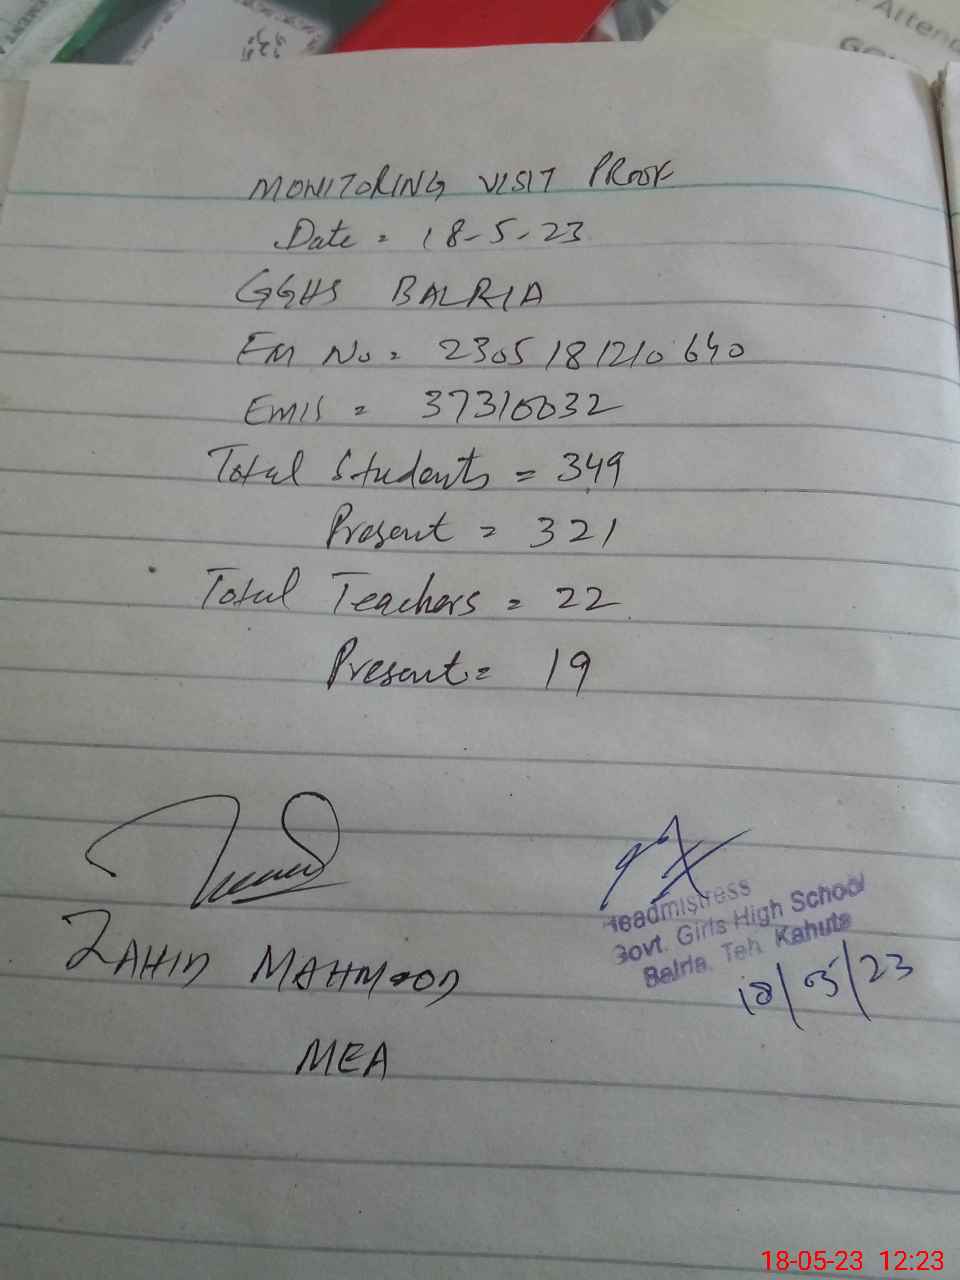 Atten
GOV
MONITORING VISIT PROOF
Date = 18-5-23
GGHS BALRIA
EM No = 2305181210640
EMIS = 37310032
Total Students = 349
Present = 321
Total Teachers = 22
Present = 19
ZAHID MAHMOOD
MEA
Headmistress
Govt. Girls High School
Balria, Teh. Kahuta
18/05/23
18-05-23 12:23